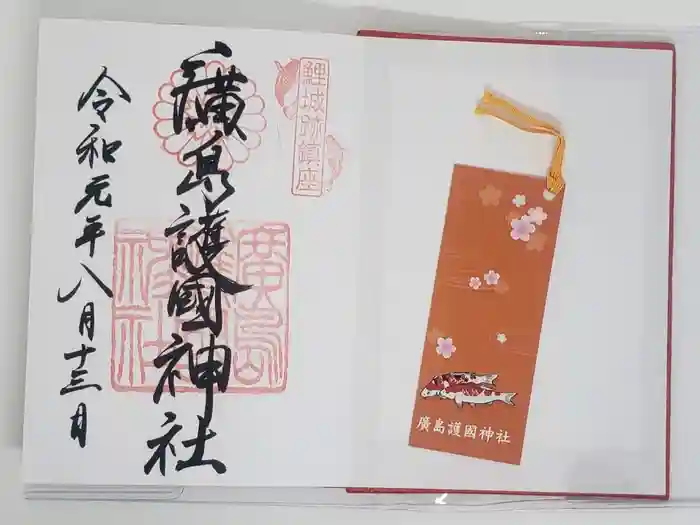 鯉城跡鎮座
廣島護國神社
令和元年八月十三日
廣島護國神社